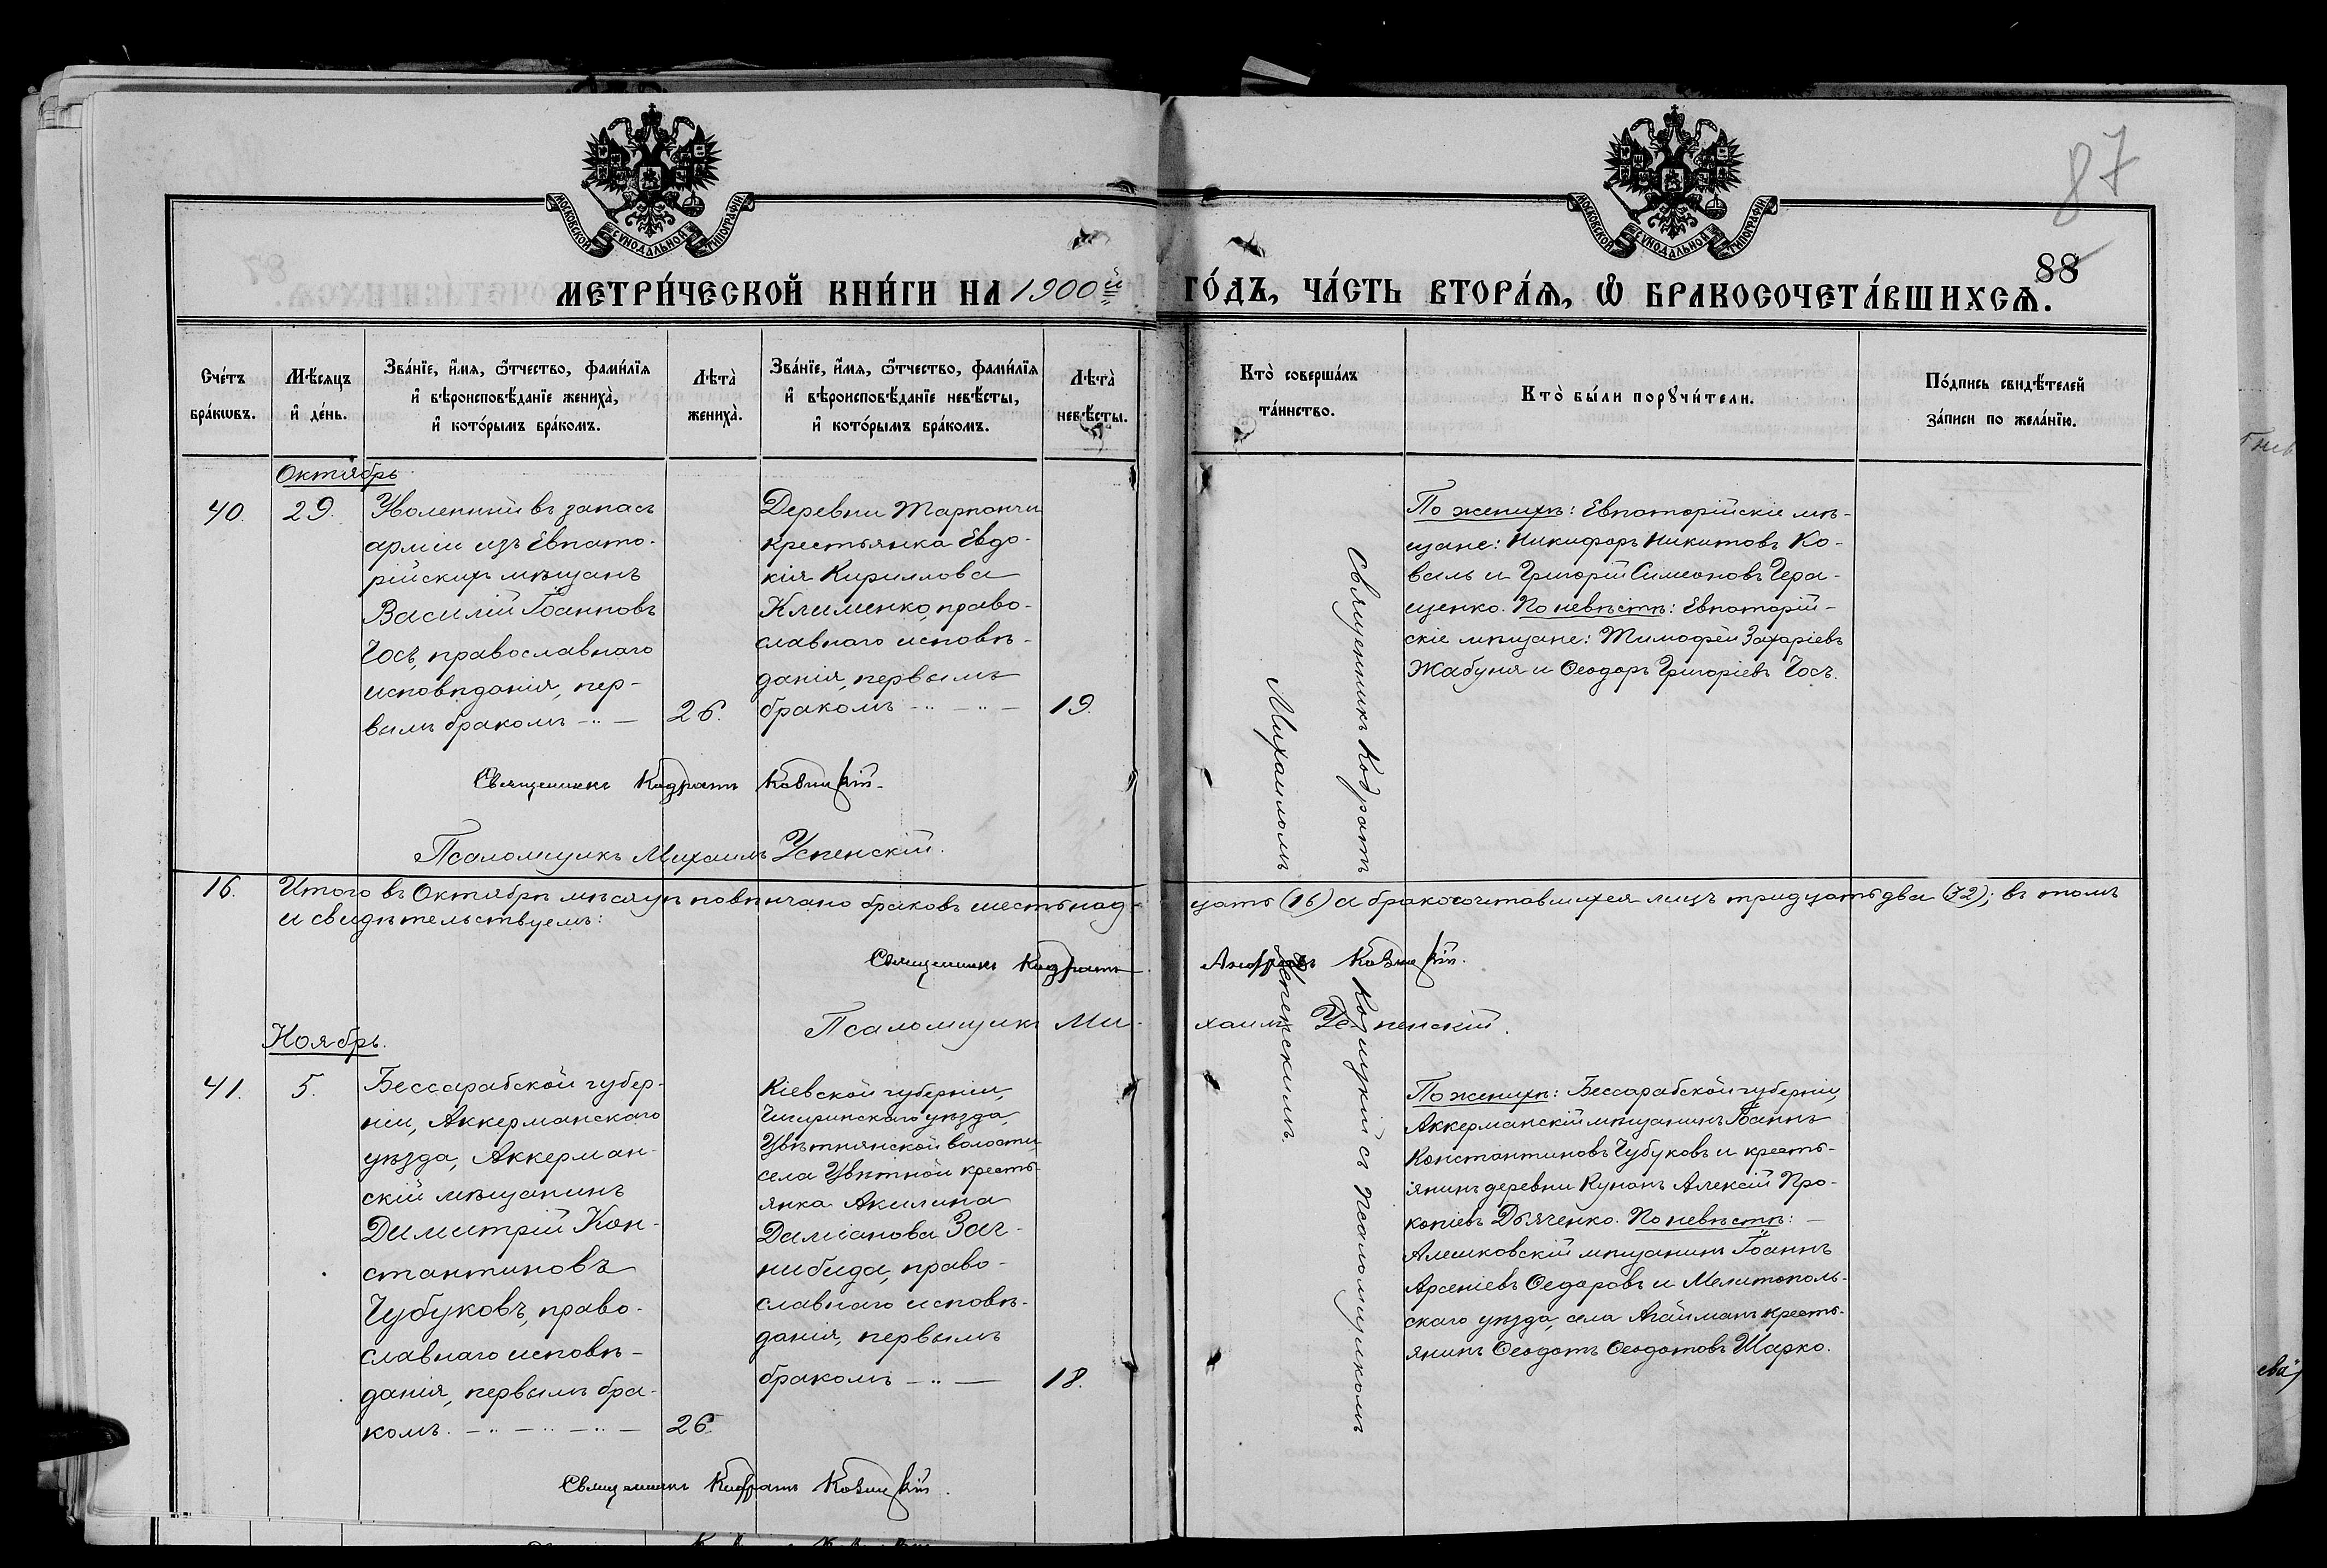 87
88
МОСКОВСКОЙ СѴНОДАЛЬНОЙ ТИПОГРАФІИ
МОСКОВСКОЙ СѴНОДАЛЬНОЙ ТИПОГРАФІИ
МЕТРИ́ЧЕСКОЙ КНИ́ГИ НА 1900й ГО́ДЪ, ЧА́СТЬ ВТОРА́Ѧ, Ѡ҆ БРАКОСОЧЕТА́ВШИХСѦ.
Сче́тъ бра́кѡвъ.
Мѣ́сяцъ и҆ де́нь.
Зва́нїе, и҆́мѧ, ѻ҆́тчество, фами́лїѧ
и҆ вѣроисповѣ́данїе жениха̀,
и҆ кото́рымъ бра́комъ.
Лѣта̀ жениха̀.
Зва́нїе, и҆́мѧ, ѻ҆́тчество, фами́лїѧ
и҆ вѣроисповѣ́данїе невѣ́сты,
и҆ кото́рымъ бра́комъ.
Лѣта̀ невѣ́сты.
Кто̀ соверша́лъ та́инство.
Кто̀ бы́ли порꙋчи́тели.
По́дпись свидѣ́телей за́писи по жела́нїю.
Октябрь
40.
29.
Уволенный въ запасъ
арміи изъ Евпато-
рійскихъ мѣщанъ
Василій Іоанновъ
Чосъ, православнаго
исповѣданія, пер-
вымъ бракомъ
26.
Деревни Тарпанчи
крестьянка Евдо-
кія Кириллова
Клименко, право-
славнаго исповѣ-
данія, первымъ
бракомъ
19.
Священникъ Кодратъ
Козицкій съ Псаломщикомъ
Михаиломъ
Успенскимъ.
По женихѣ: Евпаторійскіе мѣ-
щане: Никифоръ Никитовъ Ко-
валь и Григорій Симеоновъ Гера-
щенко. По невѣстѣ: Евпаторій-
скіе мѣщане: Тимофей Захаріевъ
Жабуня и Ѳеодоръ Григоріевъ Чосъ.
Священникъ Кодратъ Козицкій.
Псаломщикъ Михаилъ Успенскій.
16.
Итого въ Октябрѣ мѣсяцѣ повѣнчано браковъ шестьнад-
цать (16) а бракосочетавшихся лицъ тридцать два (32); въ томъ
и свидѣтельствуемъ:
Священникъ Кодратъ
Козицкій.
Псаломщикъ Ми-
хаилъ Успенскій.
Ноябрь.
41.
5.
Бессарабской губер-
ніи, Аккерманскаго
уѣзда, Аккерман-
скій мѣщанинъ
Димитрій Кон-
стантиновъ
Чубуковъ, право-
славнаго исповѣ-
данія, первымъ бра-
комъ.
26.
Кіевской губерніи,
Чигиринскаго уѣзда,
Цвѣтнянской волости,
села Цвѣтной кресть-
янка Акилина
Даміанова Заг-
нибида, право-
славнаго исповѣ-
данія, первымъ
бракомъ
18.
По женихѣ: Бессарабской губерніи,
Аккерманскій мѣщанинъ Іоаннъ
Константиновъ Чубуковъ и кресть-
янинъ деревни Кунанъ Алексій Про-
копіевъ Дьяченко. По невѣстѣ:
Алешковскій мѣщанинъ Іоаннъ
Арсеніевъ Ѳедоровъ и Мелитополь-
скаго уѣзда, села Агайманъ кресть-
янинъ Ѳеодотъ Ѳеодотовъ Шарко.
Священникъ Кодратъ Козицкій.